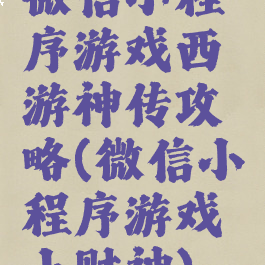 微信小程
序游戏西
游神传攻
略(微信小
程序游戏
财神)